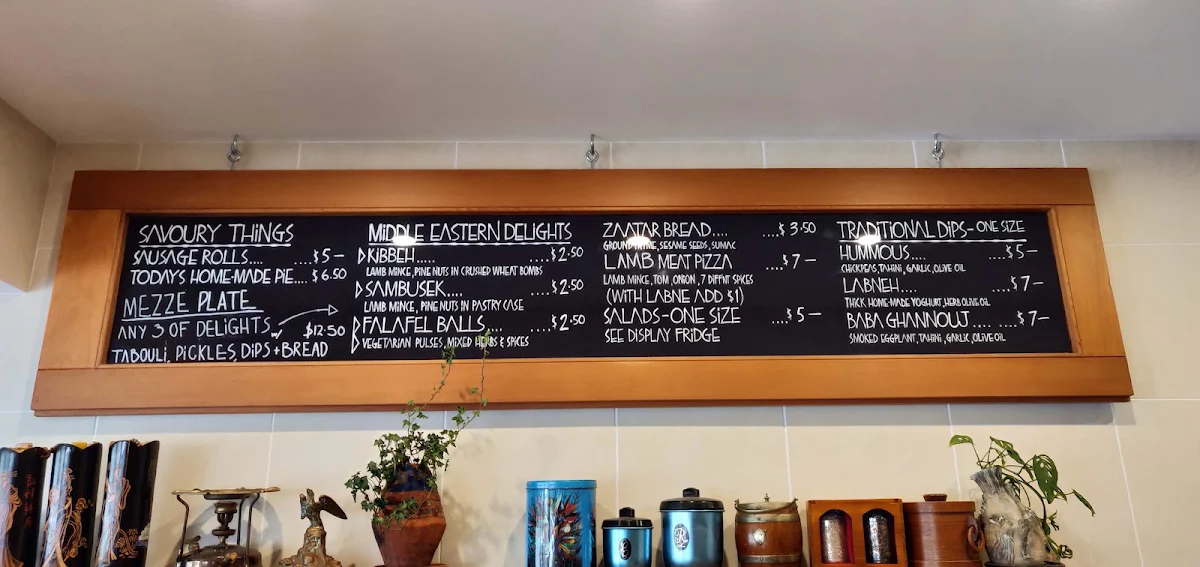 SAVOURY THINGS
SAUSAGE ROLLS.... ....$5 —
TODAYS HOME-MADE PIE.... $6.50
MEZZE PLATE
ANY 3 OF DELIGHTS w/ $12.50
TABOULI, PICKLES, DIPS + BREAD
MIDDLE EASTERN DELIGHTS
KIBBEH..... ....$2.50
LAMB MINCE, PINE NUTS IN CRUSHED WHEAT BOMBS
SAMBUSEK.... ....$2.50
LAMB MINCE, PINE NUTS IN PASTRY CASE
FALAFEL BALLS.... ....$2.50
VEGETARIAN PULSES, MIXED HERBS & SPICES
ZAATAR BREAD.... ....$3.50
GROUND THYME, SESAME SEEDS, SUMAC
LAMB MEAT PIZZA ....$7 —
LAMB MINCE, TOM, ONION, 7 DIFFNT SPICES
(WITH LABNE ADD $1)
SALADS - ONE SIZE ....$5 —
SEE DISPLAY FRIDGE
TRADITIONAL DIPS - ONE SIZE
HUMMOUS.... ....$5 —
CHICKPEAS, TAHINI, GARLIC, OLIVE OIL
LABNEH.... ....$7 —
THICK HOME-MADE YOGHURT, HERB OLIVE OIL
BABA GHANNOUJ.... ....$7 —
SMOKED EGGPLANT, TAHINI, GARLIC, OLIVE OIL